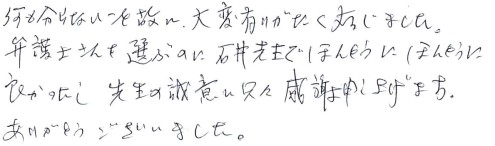 何も分らないこと故に、大変有りがたく存じました。
弁護士さんを選ぶのに石井先生でほんとうにほんとうに
良かったし 先生の誠意に只々感謝申し上げます。
ありがとうございました。